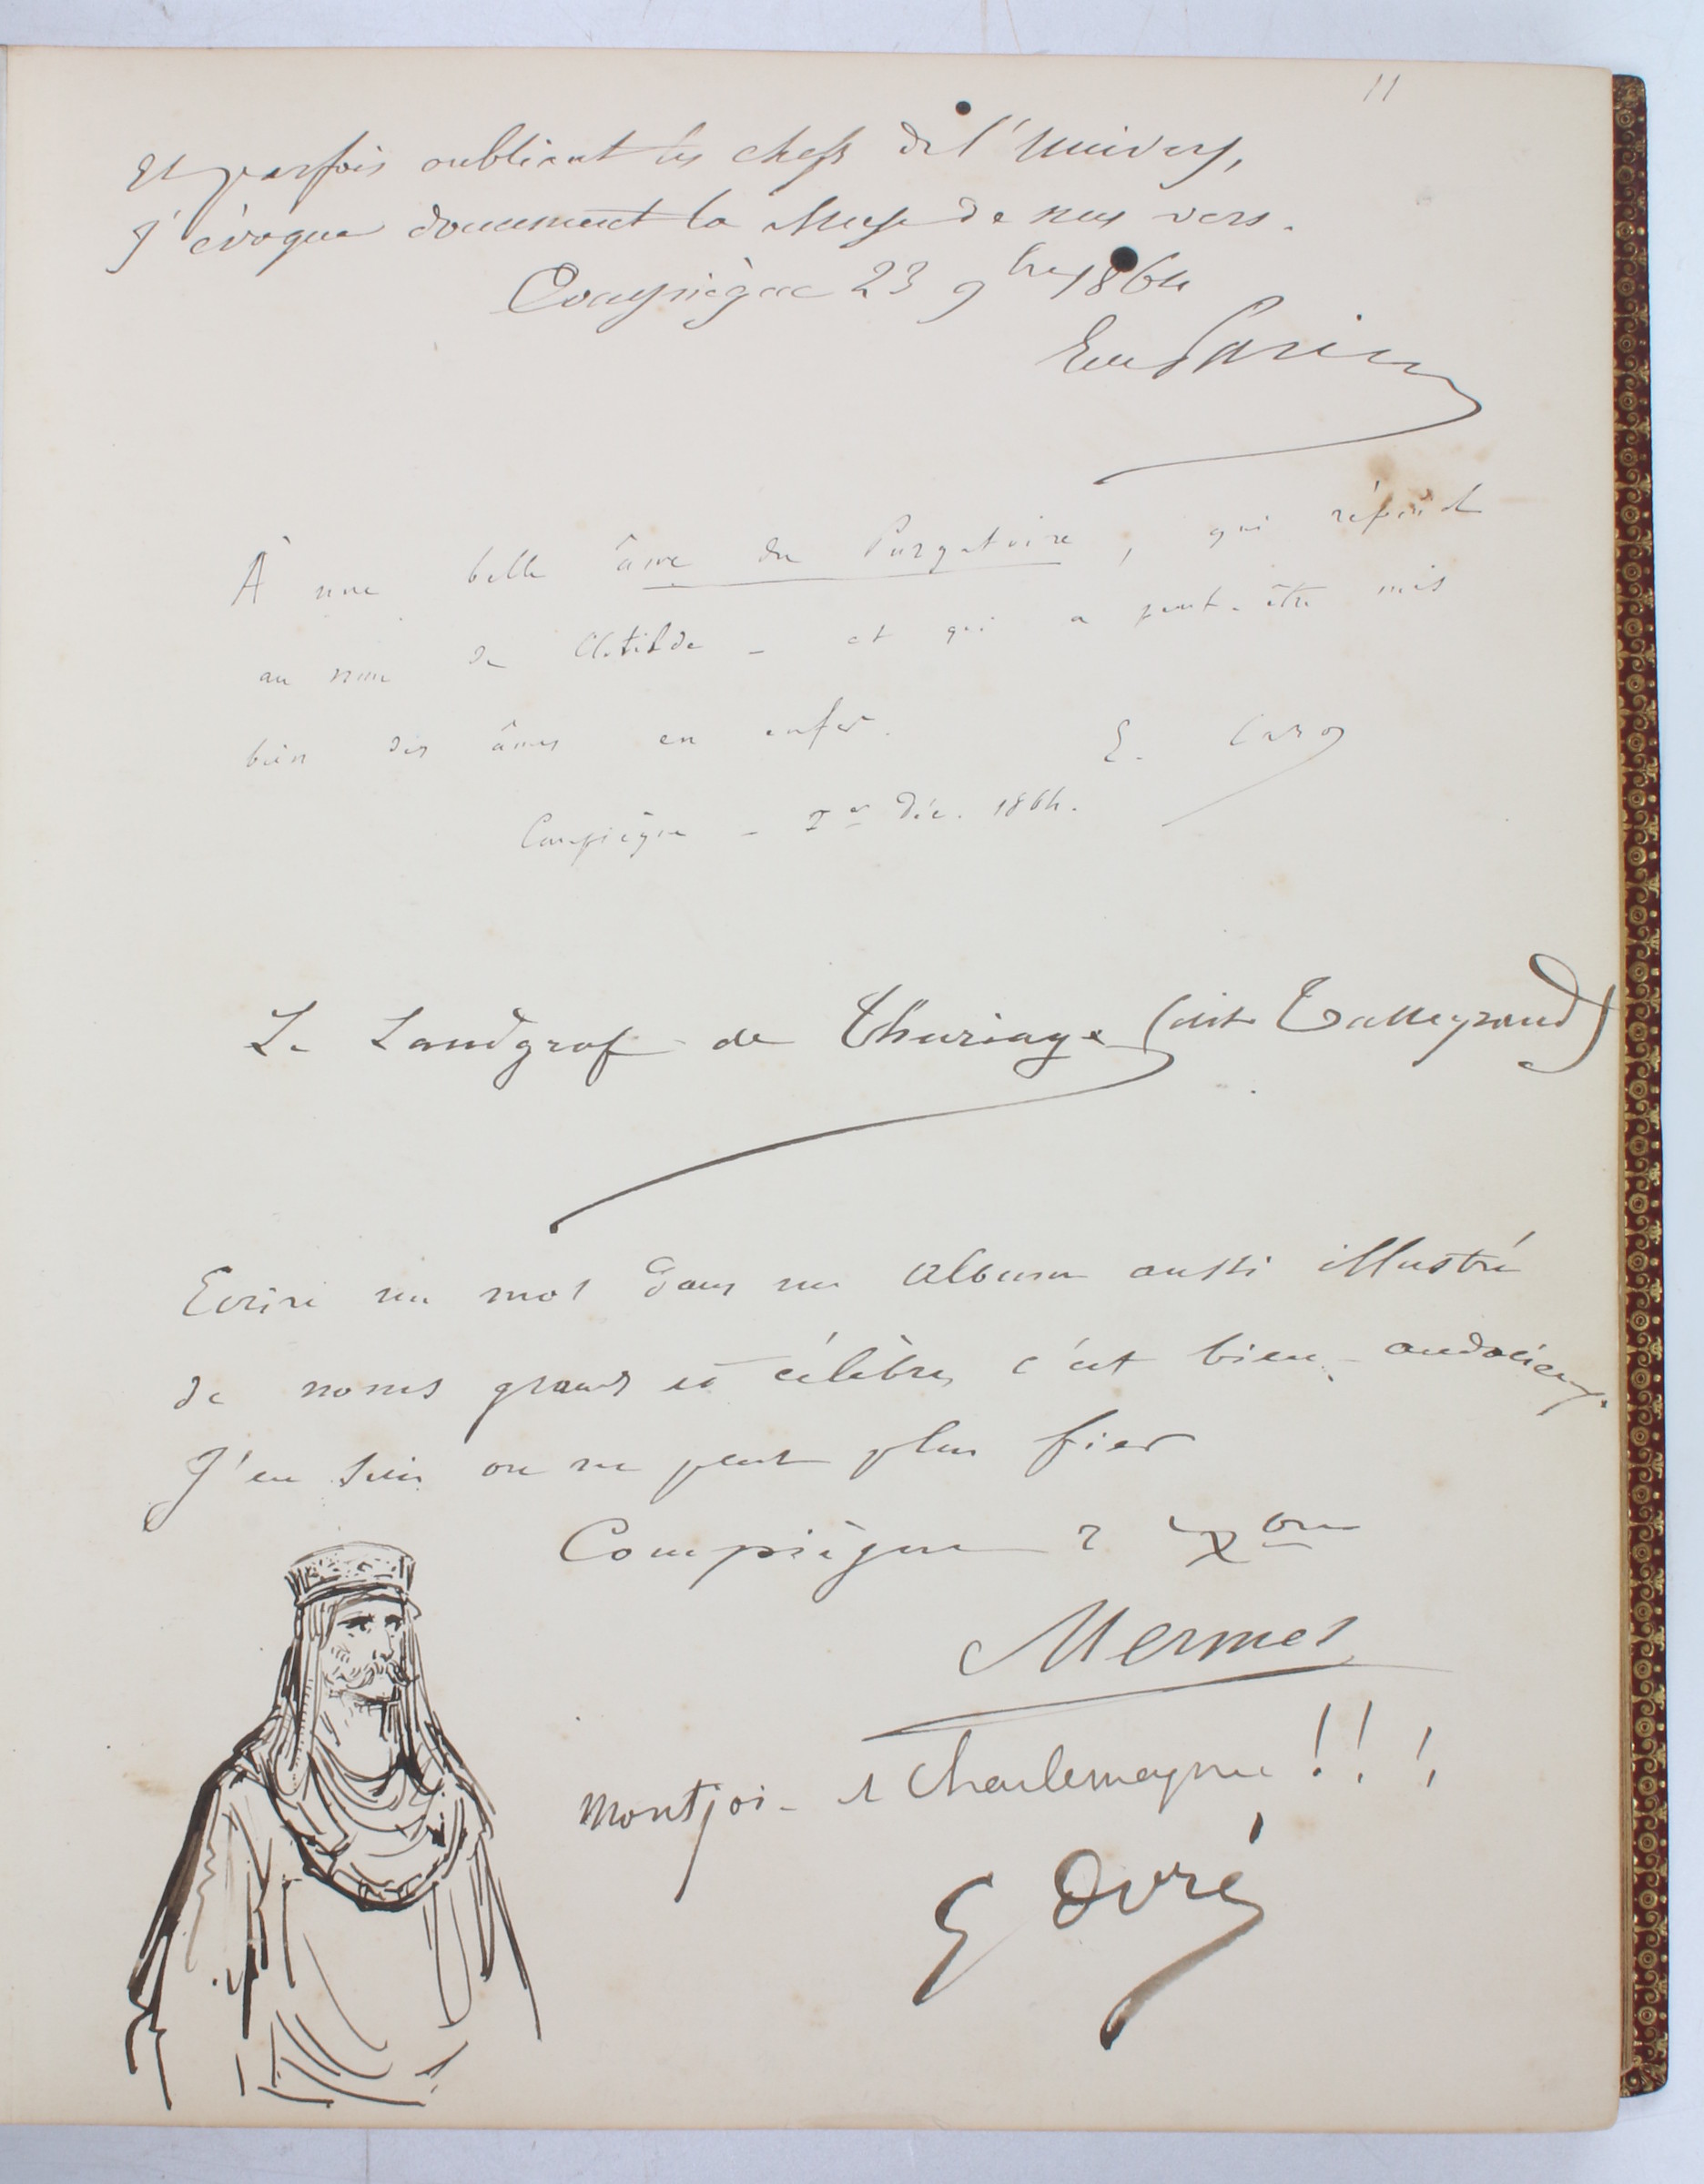 11
Et parfois oubliant les chefs de l'Univers,
J'évoque doucement la Muse de nos vers.
Compiègne 23 9bre 1864
À une belle âme du Purgatoire, qui répond
au nom de Clotilde - et qui a peut-être mis
bien des âmes en enfer.
E. Caro
Compiègne - 2er Déc. 1864.
Le Landgraf de Thuringe (dit Talleyrand)
Ecrire un mot dans un album aussi illustré
de noms grands et célèbres c'est bien audacieux.
J'en suis on ne peut plus fier
Compiègne 2 Xbre
Mermet
Montjoie et Charlemagne!!!
G Doré